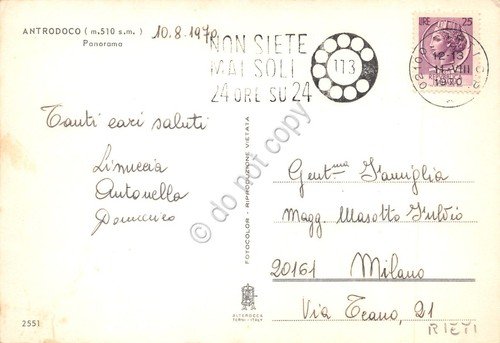 ANTRODOCO (m. 510 s.m.)
Panorama
10.8.1970
NON SIETE
MAI SOLI
24 ORE SU 24
113
LIRE 25
02100
12-13
11·VIII
1970
Tanti cari saluti
Linuccia
Antonella
Domenico
FOTOCOLOR - RIPRODUZIONE VIETATA
do not copy
Gent.ma Famiglia
Magg. Masotto Fulvio
20161 Milano
Via Teano, 21
RIETI
ALTEROCCA
TERNI - ITALY
2551